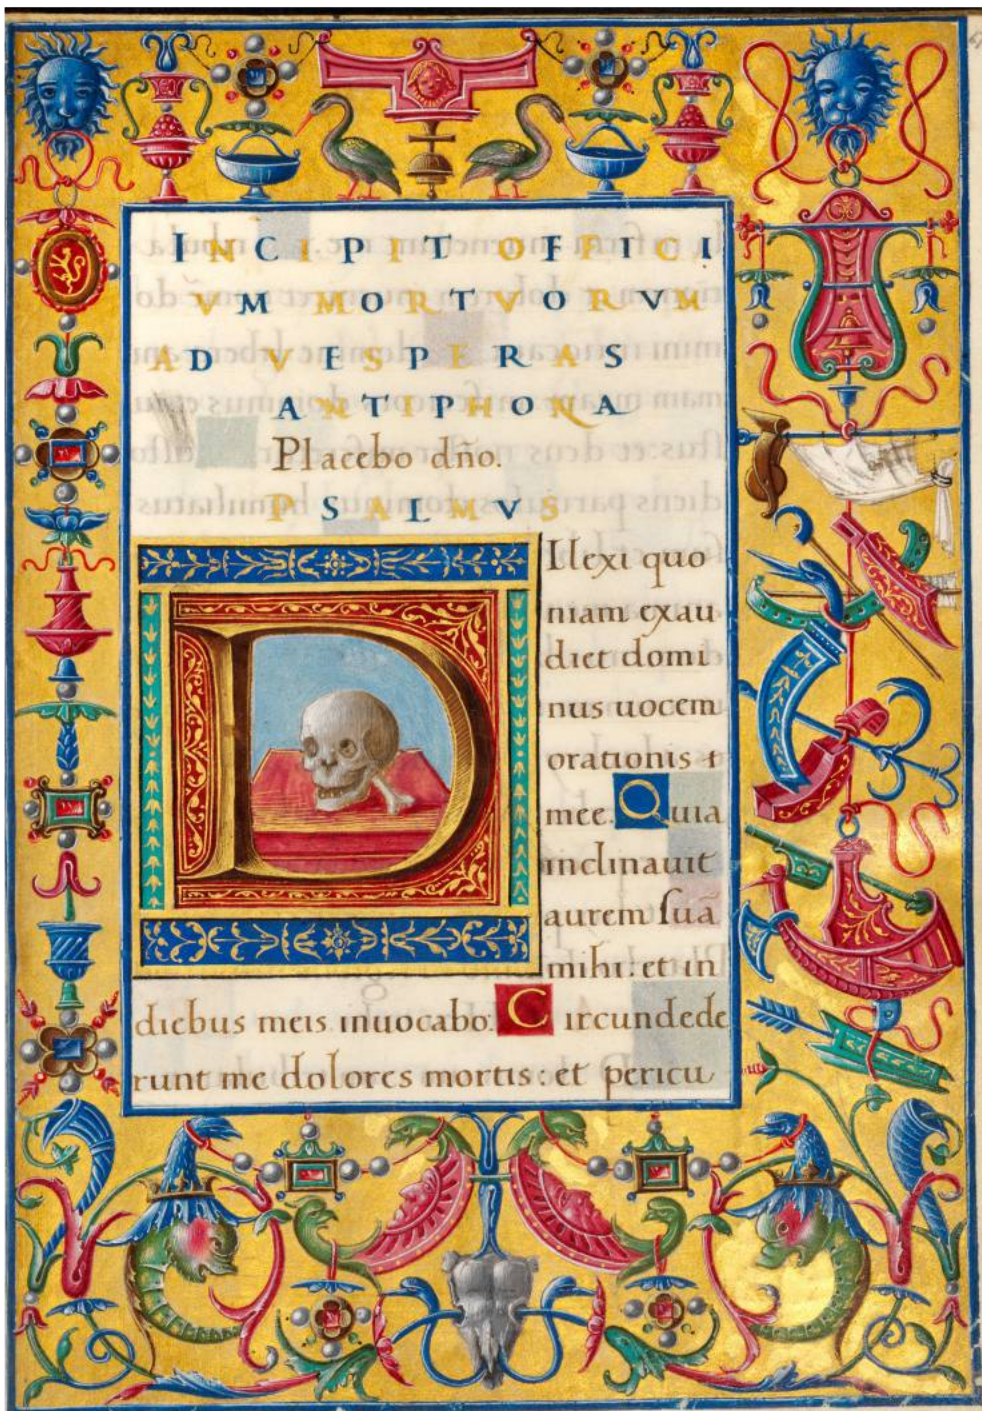 INCIPIT OFFICI
VM MORTVORVM
AD VESPERAS
ANTIPHONA
Placebo dño.
PSALMVS
DIlexi quo
niam exau
diet domi
nus uocem
orationis
mee. Quia
inclinauit
aurem ſuã
mihi: et in
diebus meis inuocabo: Circundede
runt me dolores mortis: et pericu